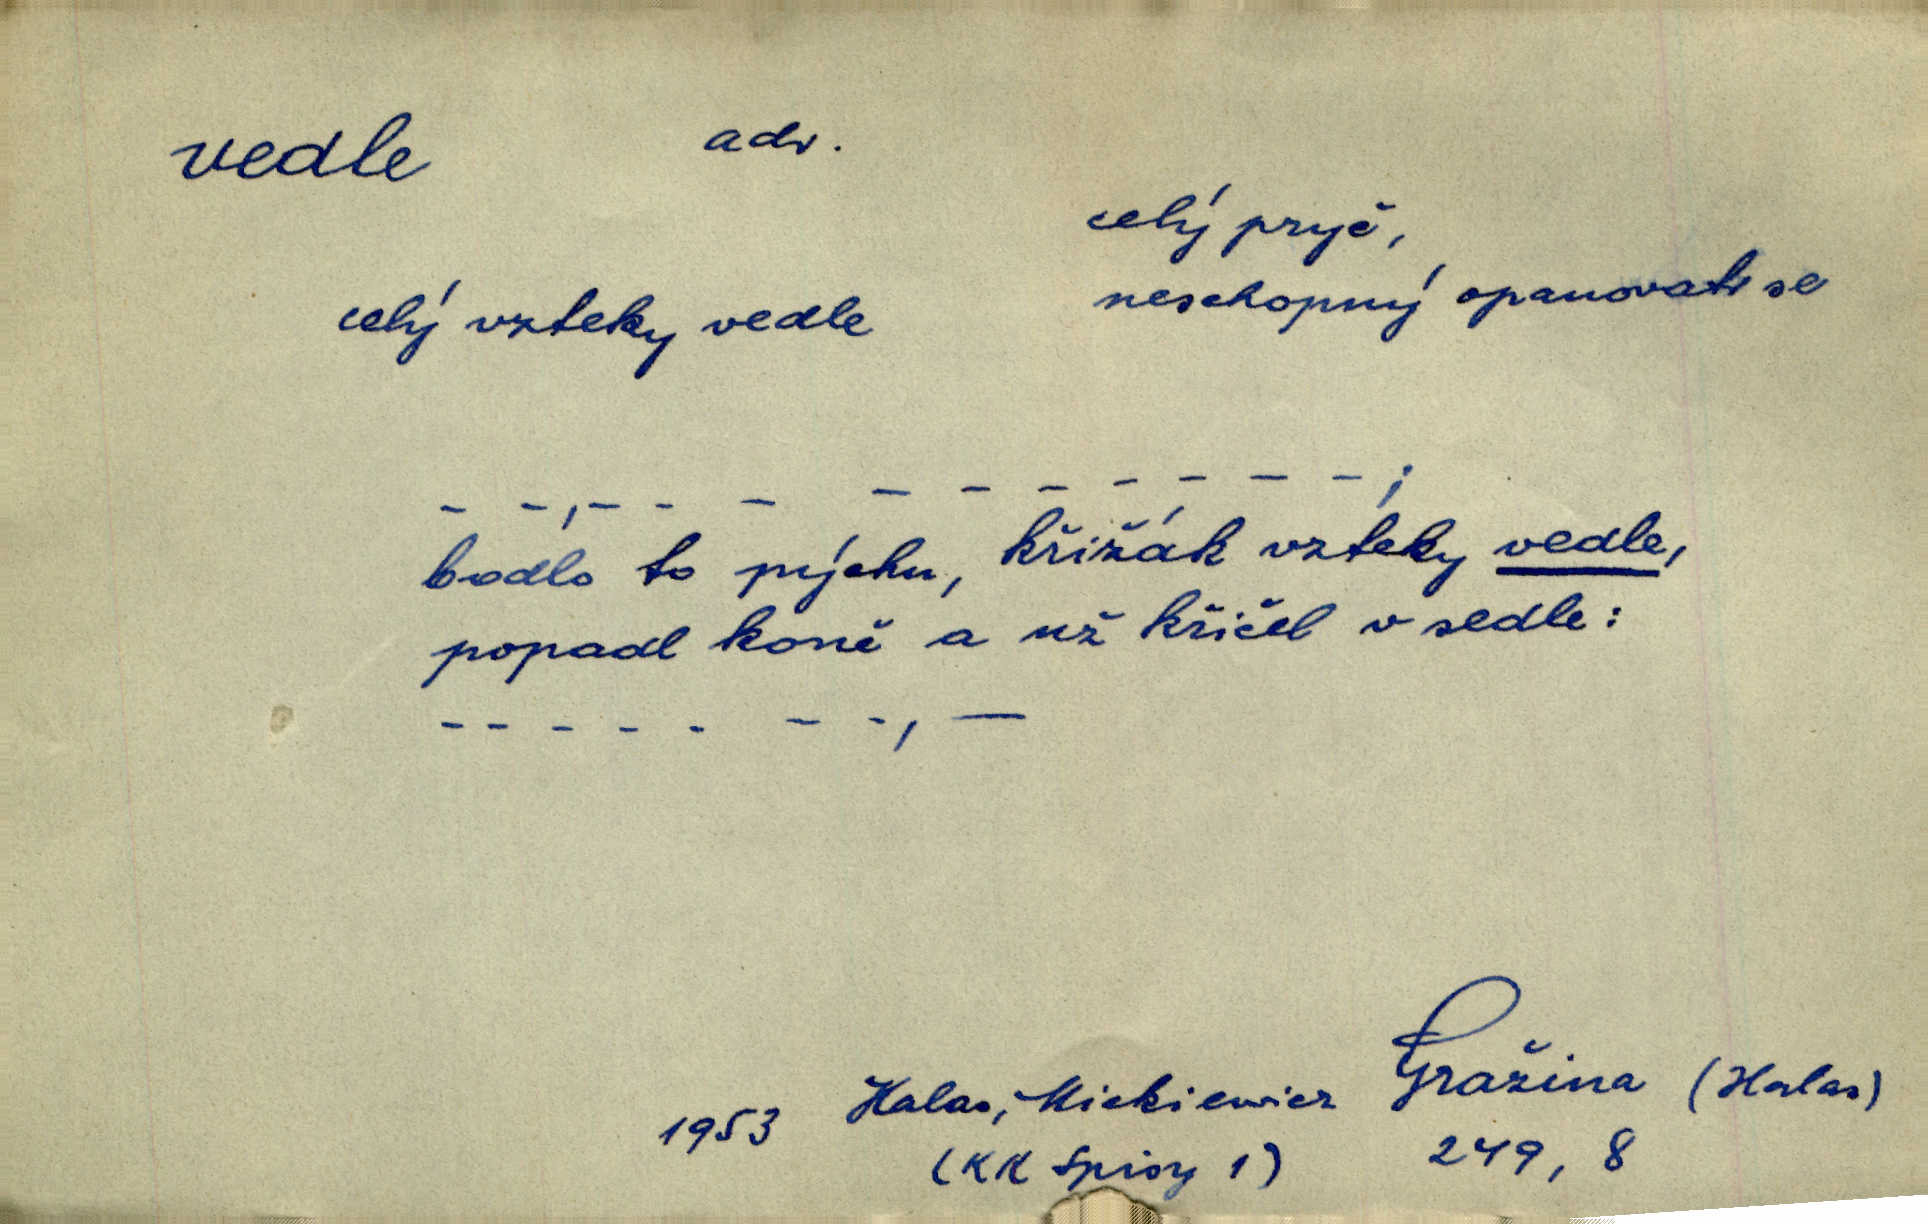 vedle adv.
celý pryč,
neschopný opanovati se
celý vzteky vedle
_ _,_ _ _ _ _ _ _ _ _ _ _;
bodlo to pýchu, křižák vzteky vedle,
popadl koně a už křičel v sedle:
_ _ _ _ _ _ _, —
1953 Halas, Mickiewicz Gražina (Halas)
(KK Spisy 1) 249, 8